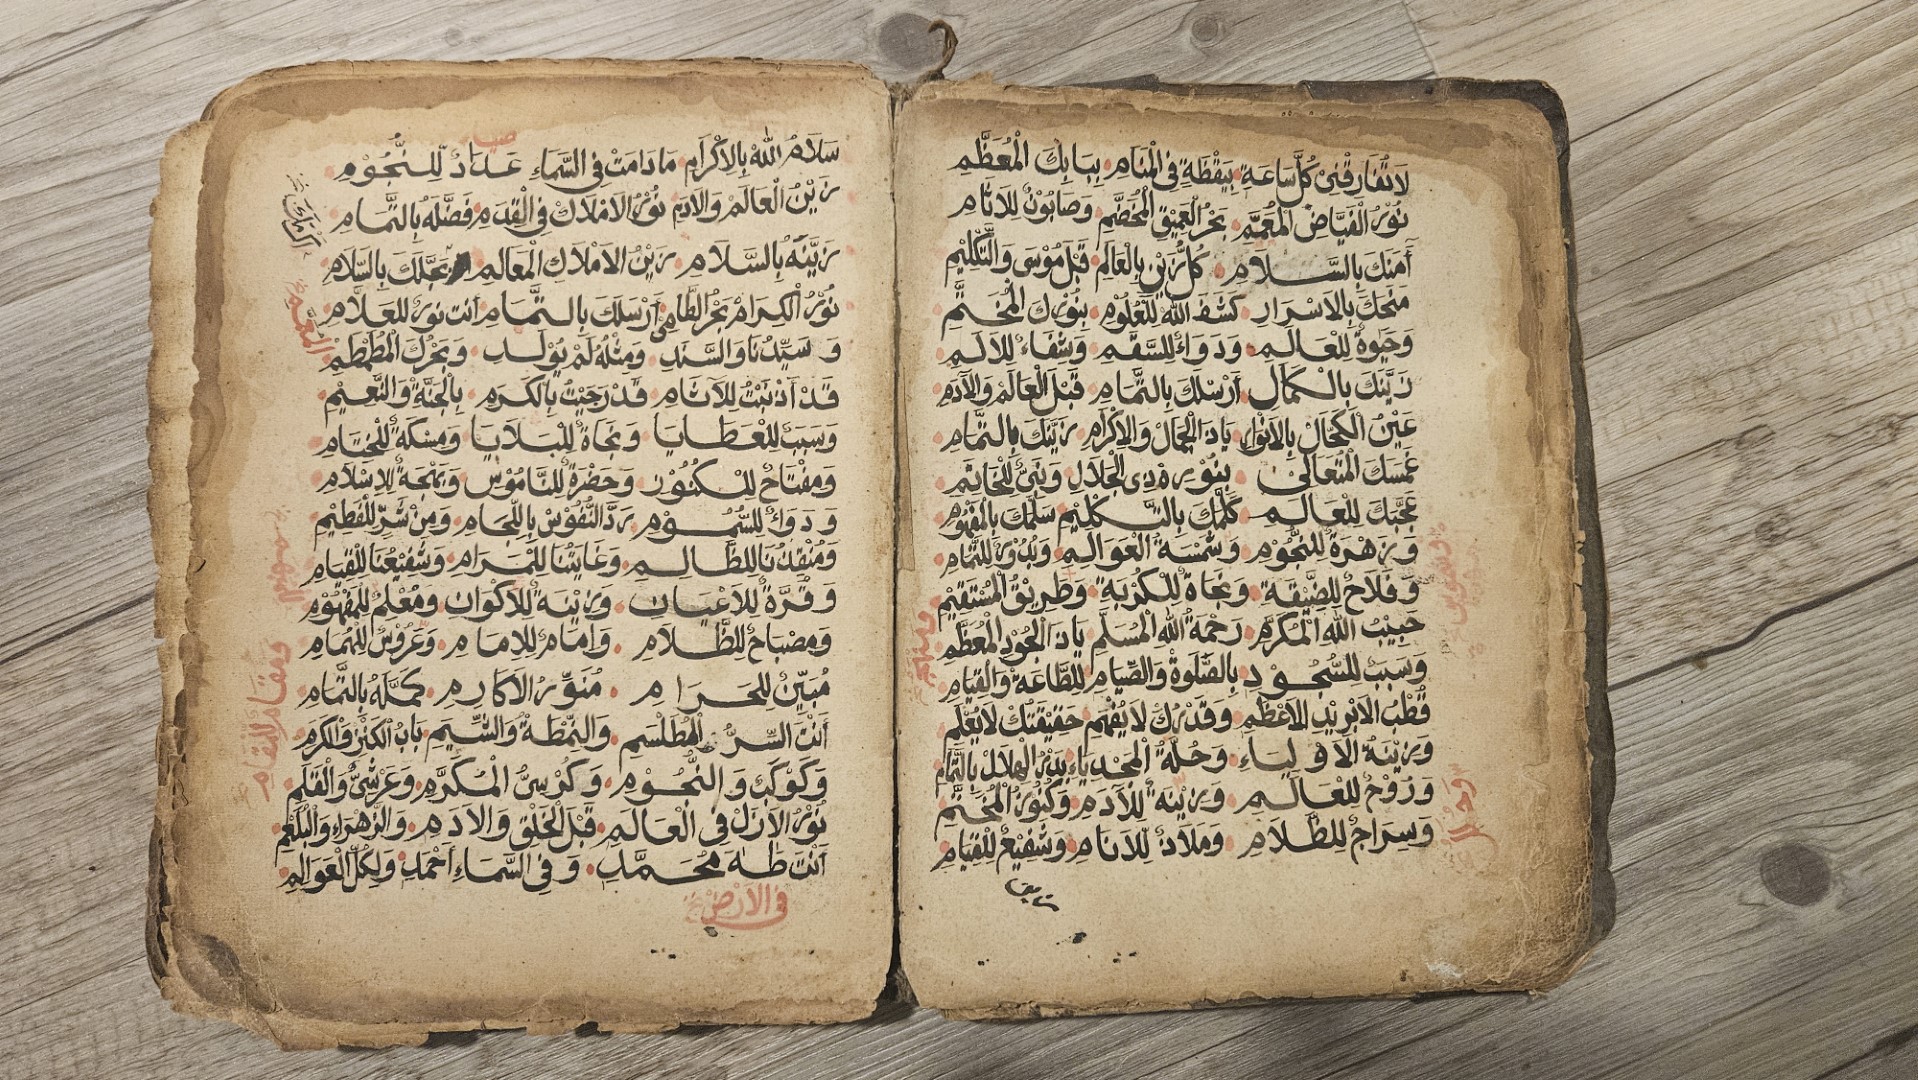 لَا تُفَارِقْنِيْ كُلَّ سَاعَةٍ بِيَقْظَةٍ فِي الْمَنَامِ بِبَابِكَ الْمُعَظَّمِ
نُوْرُ الْفَيَّاضِ الْمُعَمَّمِ بَحْرُ الْعَمِيْقِ الْخِضَمِّ وَصَابُوْنٌ لِلْاَثَامِ
أَمَنَكَ بِالسَّلَامِ كُلُّ زَيْنٍ بِالْعَالَمِ قَبْلَ مُوْسَى وَالتَّكْلِيْمِ
مَنَحَكَ بِالْاَسْرَارِ كَشَفَ اللّٰهُ لِلْعُلُوْمِ بِنُوْرِكَ الْمُخَتَّمِ
وَحَيٰوةٌ لِلْعَالَمِ وَدَوَاءٌ لِلسَّقَمِ وَشِفَاءٌ لِلْاَلَمِ
زَيَّنَكَ بِالْكَمَالِ أَرْسَلَكَ بِالتَّمَامِ قَبْلَ الْعَالَمِ وَالْاٰدَمِ
عَيْنُ الْكَحَالِ بِالْاَنْوَارِ يَا ذَا الْجَمَالِ وَالْاِكْرَامِ زَيَّنَكَ بِالتَّمَامِ
غَمَسَكَ الْمُتَعَالِيْ بِنُوْرِهِ ذِي الْجَلَالِ وَنَبِيٌّ لِلْخَاتَمِ
عَجَّبَكَ لِلْعَالَمِ كَلَّمَكَ بِالتَّكْلِيْمِ سَلَّمَكَ بِالْمَفْهُوْمِ
وَزَهْرَةٌ لِلنُّجُوْمِ وَشَمْسَةُ الْعَوَالِمِ وَبُدُوْرٌ لِلتَّمَامِ
وَفَلَاحٌ لِلضَّيِّقَةِ وَنَجَاةٌ لِلْكُرْبَةِ وَطَرِيْقُ الْمُسْتَقِيْمِ
حَبِيْبُ اللّٰهِ الْمُكَرَّمِ رَحْمَةُ اللّٰهِ الْمُسَلَّمِ يَا ذَا الْجُوْدِ الْمُعَظَّمِ
وَسَبَبٌ لِلسُّجُوْدِ بِالصَّلٰوةِ وَالصِّيَامِ لِلطَّاعَةِ وَالْقِيَامِ
قُطْبُ الْاَعْظَمِ وَقَدْرُكَ لَا يُفْهَمُ حَقِيْقَتُكَ لَا يُعْلَمُ
وَزِيْنَةُ الْاَوْلِيَاءِ وَحُلَّةُ بَدْرُ الْهِلَالِ بِالتَّمَامِ
وَرُوْحٌ لِلْعَالَمِ وَزِيْنَةٌ لِلْاٰدَمِ وَكُنُوْزُ الْمُخَتَّمِ
وَسِرَاجٌ لِلظَّلَامِ وَمَلَاذٌ لِلْاَنَامِ وَشَفِيْعٌ لِلْقِيَامِ
سَلَامُ اللّٰهِ بِالْاِكْرَامِ مَا دَامَتْ فِي السَّمَاءِ عَدَادٌ لِلنُّجُوْمِ
زَيْنُ الْعَالَمِ وَالْاٰدَمِ نُوْرُ الْاَمْلَاكِ فِي الْقِدَمِ فَضَّلَهُ بِالتَّمَامِ
زَيَّنَهُ بِالسَّلَامِ زَيْنُ الْاَمْلَاكِ الْمَعَالِمِ بَجَّلَكَ بِالسَّلَامِ
نُوْرُ الْكِرَامْ بَحْرُ الطَّامِيْ أَرْسَلَكَ بِالتَّمَامِ أَنْتَ نُوْرٌ لِلْعَلَّامِ
وَسَيِّدُنَا وَالسَّنَدِ وَمِثْلُهُ لَمْ يُوْلَدِ وَبَحْرُكَ الْمُطَمْطَمِ
قَدْ أَذْنَبْتُ لِلْاٰثَامِ قَدْ رَجَيْتُ بِالْكَرَمِ بِالْجَنَّةِ وَالنَّعِيْمِ
وَسَبَبٌ لِلْعَطَايَا وَنَجَاةٌ لِلْبَلَايَا وَمِسْكَةٌ لِلْخِتَامِ
وَمِفْتَاحٌ لِلْكُنُوْزِ وَحَضْرَةٌ لِلنَّامُوْسِ وَبَهْجَةٌ لِلْاِسْلَامِ
وَدَوَاءٌ لِلسُّمُوْمِ رَدَّ النُّفُوْسِ بِاللِّجَامِ وَمِنْ شَرٍّ لِلْفَطِيْمِ
وَمُنْقِذُنَا لِلظَّالِمِ وَغَايَتُنَا لِلْمَرَامِ وَشَفِيْعُنَا لِلْقِيَامِ
وَقُرَّةٌ لِلْاَعْيَانِ وَزِيْنَةٌ لِلْاَكْوَانِ وَمُعَلِّمٌ لِلْمَفْهُوْمِ
وَمِصْبَاحٌ لِلظَّلَامِ وَاِمَامٌ لِلْاِمَامِ وَعَرُوْسٌ لِلْهُمَامِ
مُبَيِّنٌ لِلْحَرَامِ مُنَوِّرُ الْاَكَارِمِ كَمَّلَهُ بِالتَّمَامِ
أَنْتَ السِّرُّ الْمُطَلْسَمِ وَالنُّقْطَةُ وَالشِّيَمِ بَابُ الْكَنْزِ وَالْكَرَمِ
وَكَوْكَبٌ وَالنُّجُوْمِ وَكُرْسِيُّ الْمُكَرَّمِ وَعَرْشِيٌّ وَالْقَلَمِ
نُوْرُ الْاَزَلِ فِي الْعَالَمِ قَبْلَ الْخَلْقِ وَالْاٰدَمِ وَالزَّهْرَاءِ وَالْبَلْعَمِ
أَنْتَ طٰهَ مُحَمَّدٍ وَفِي السَّمَاءِ أَحْمَدِ وَلِكُلِّ الْعَوَالِمِ
فِي الْاَرْضِ
وَمَقَامٌ لِلْمَقَامِ